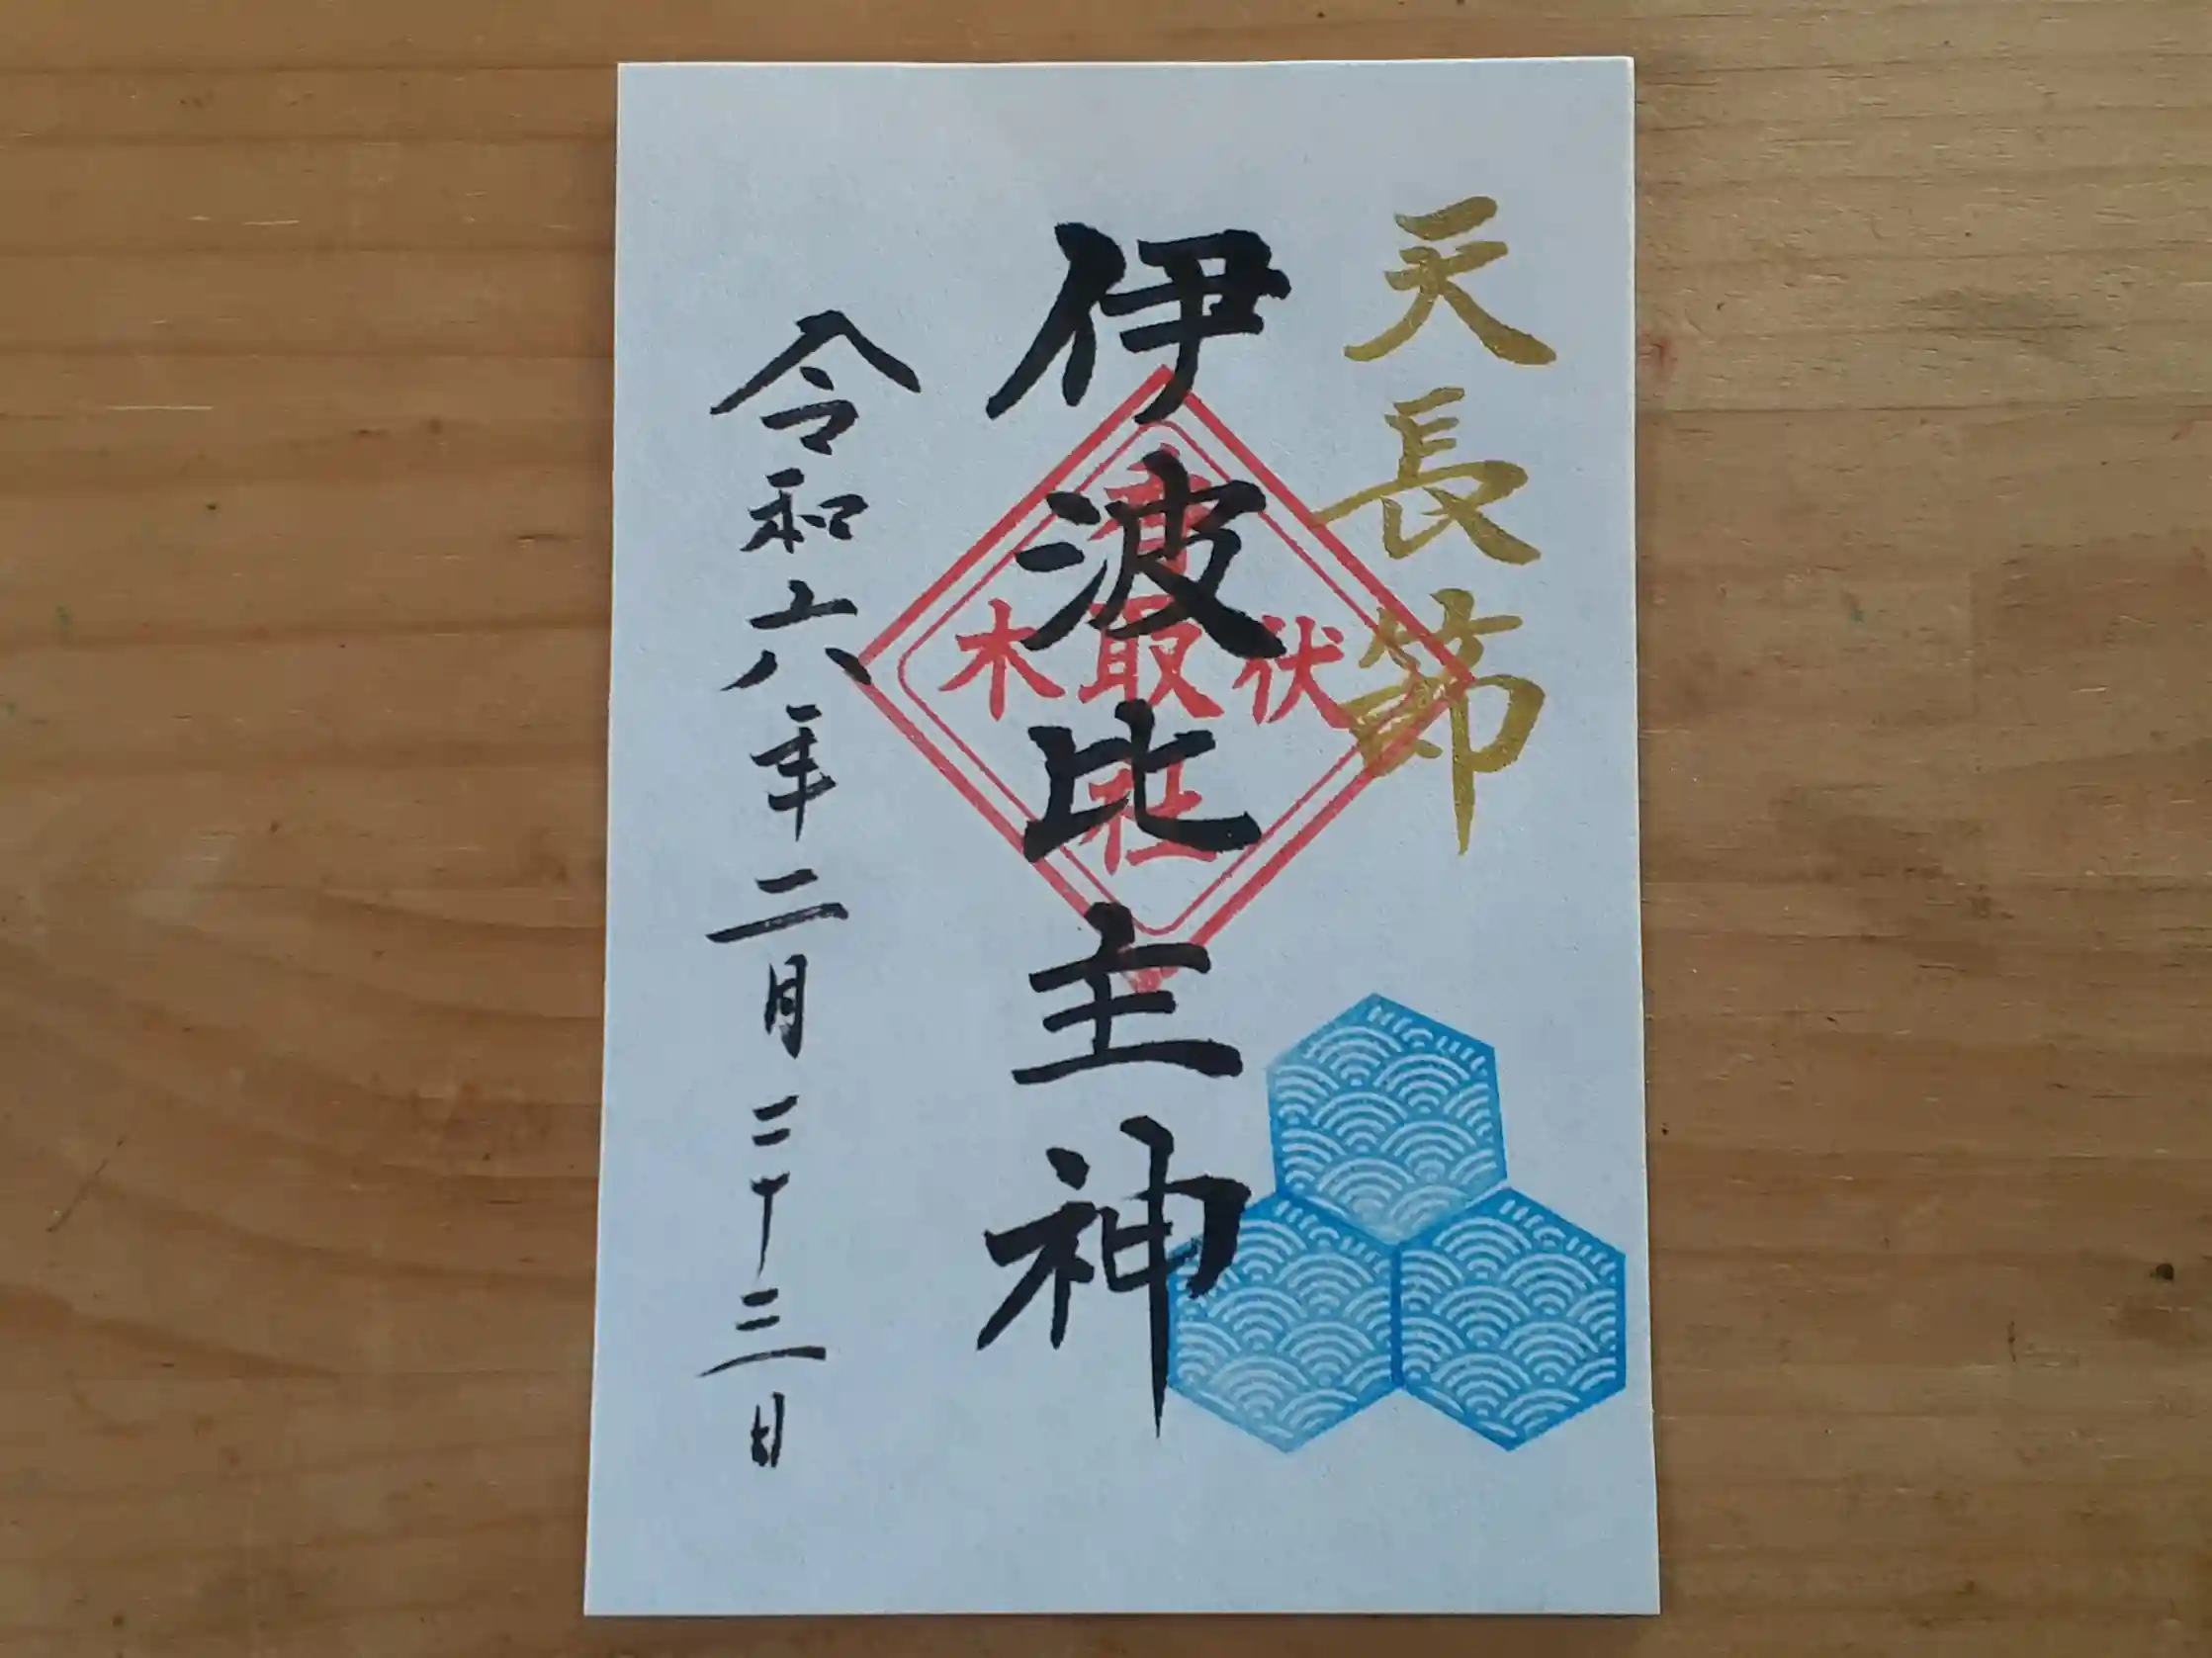 天長節
伊波比主神
伏木
香取社
令和六年二月二十三日